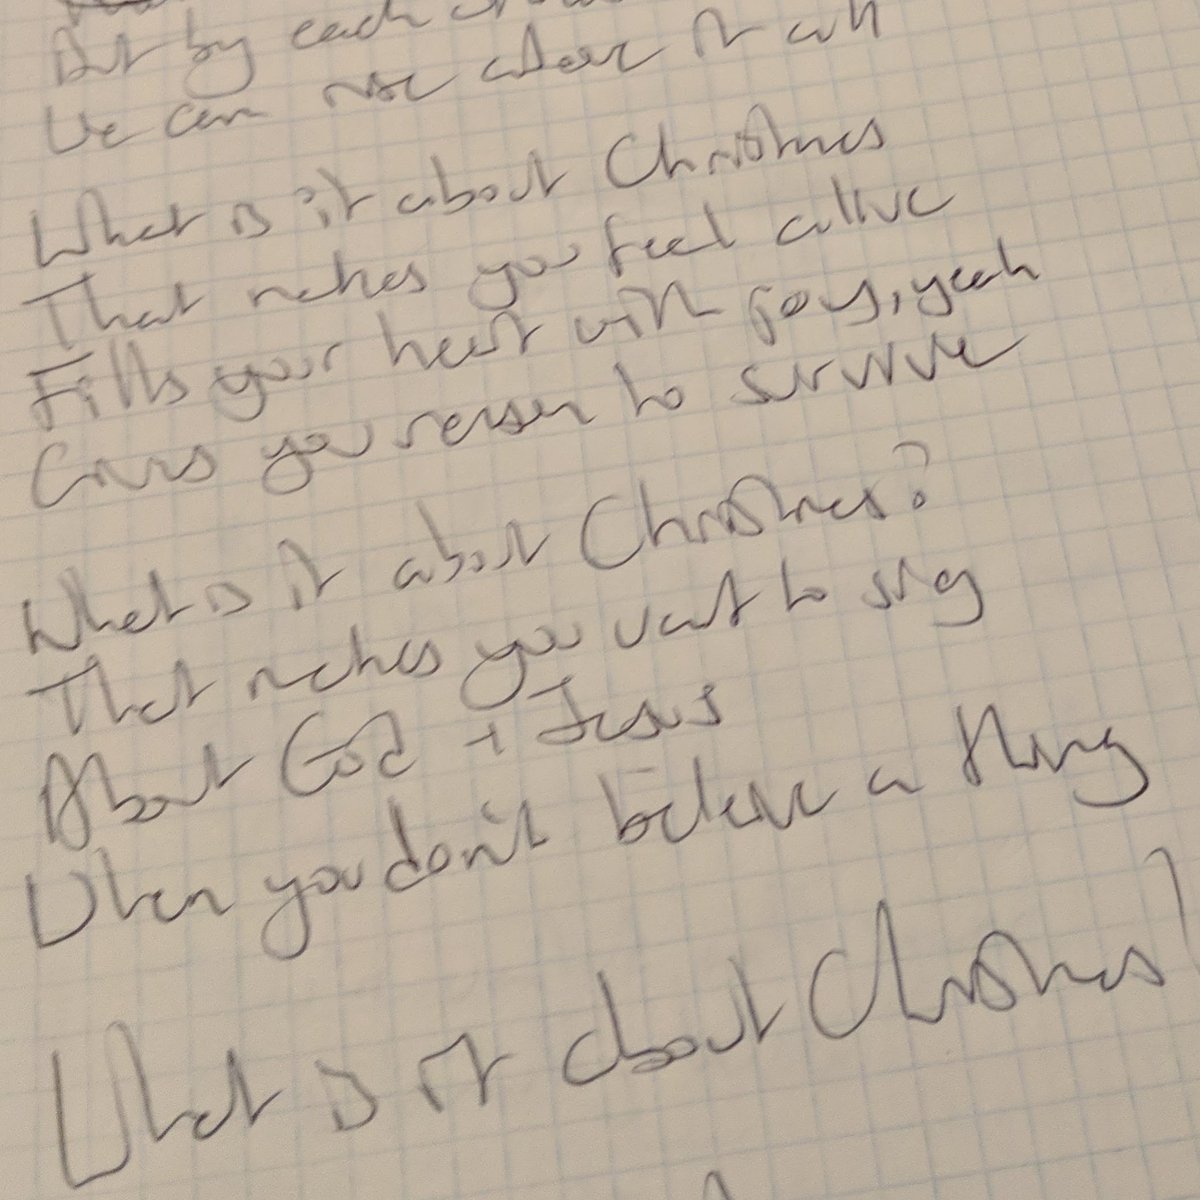 But by each
We can rise above it all
What is it about Christmas
That makes you feel alive
Fills your heart with joy, yeah
Gives you reason to survive
What is it about Christmas?
That makes you want to sing
About God + Jesus
When you don't believe a thing
What is it about Christmas?